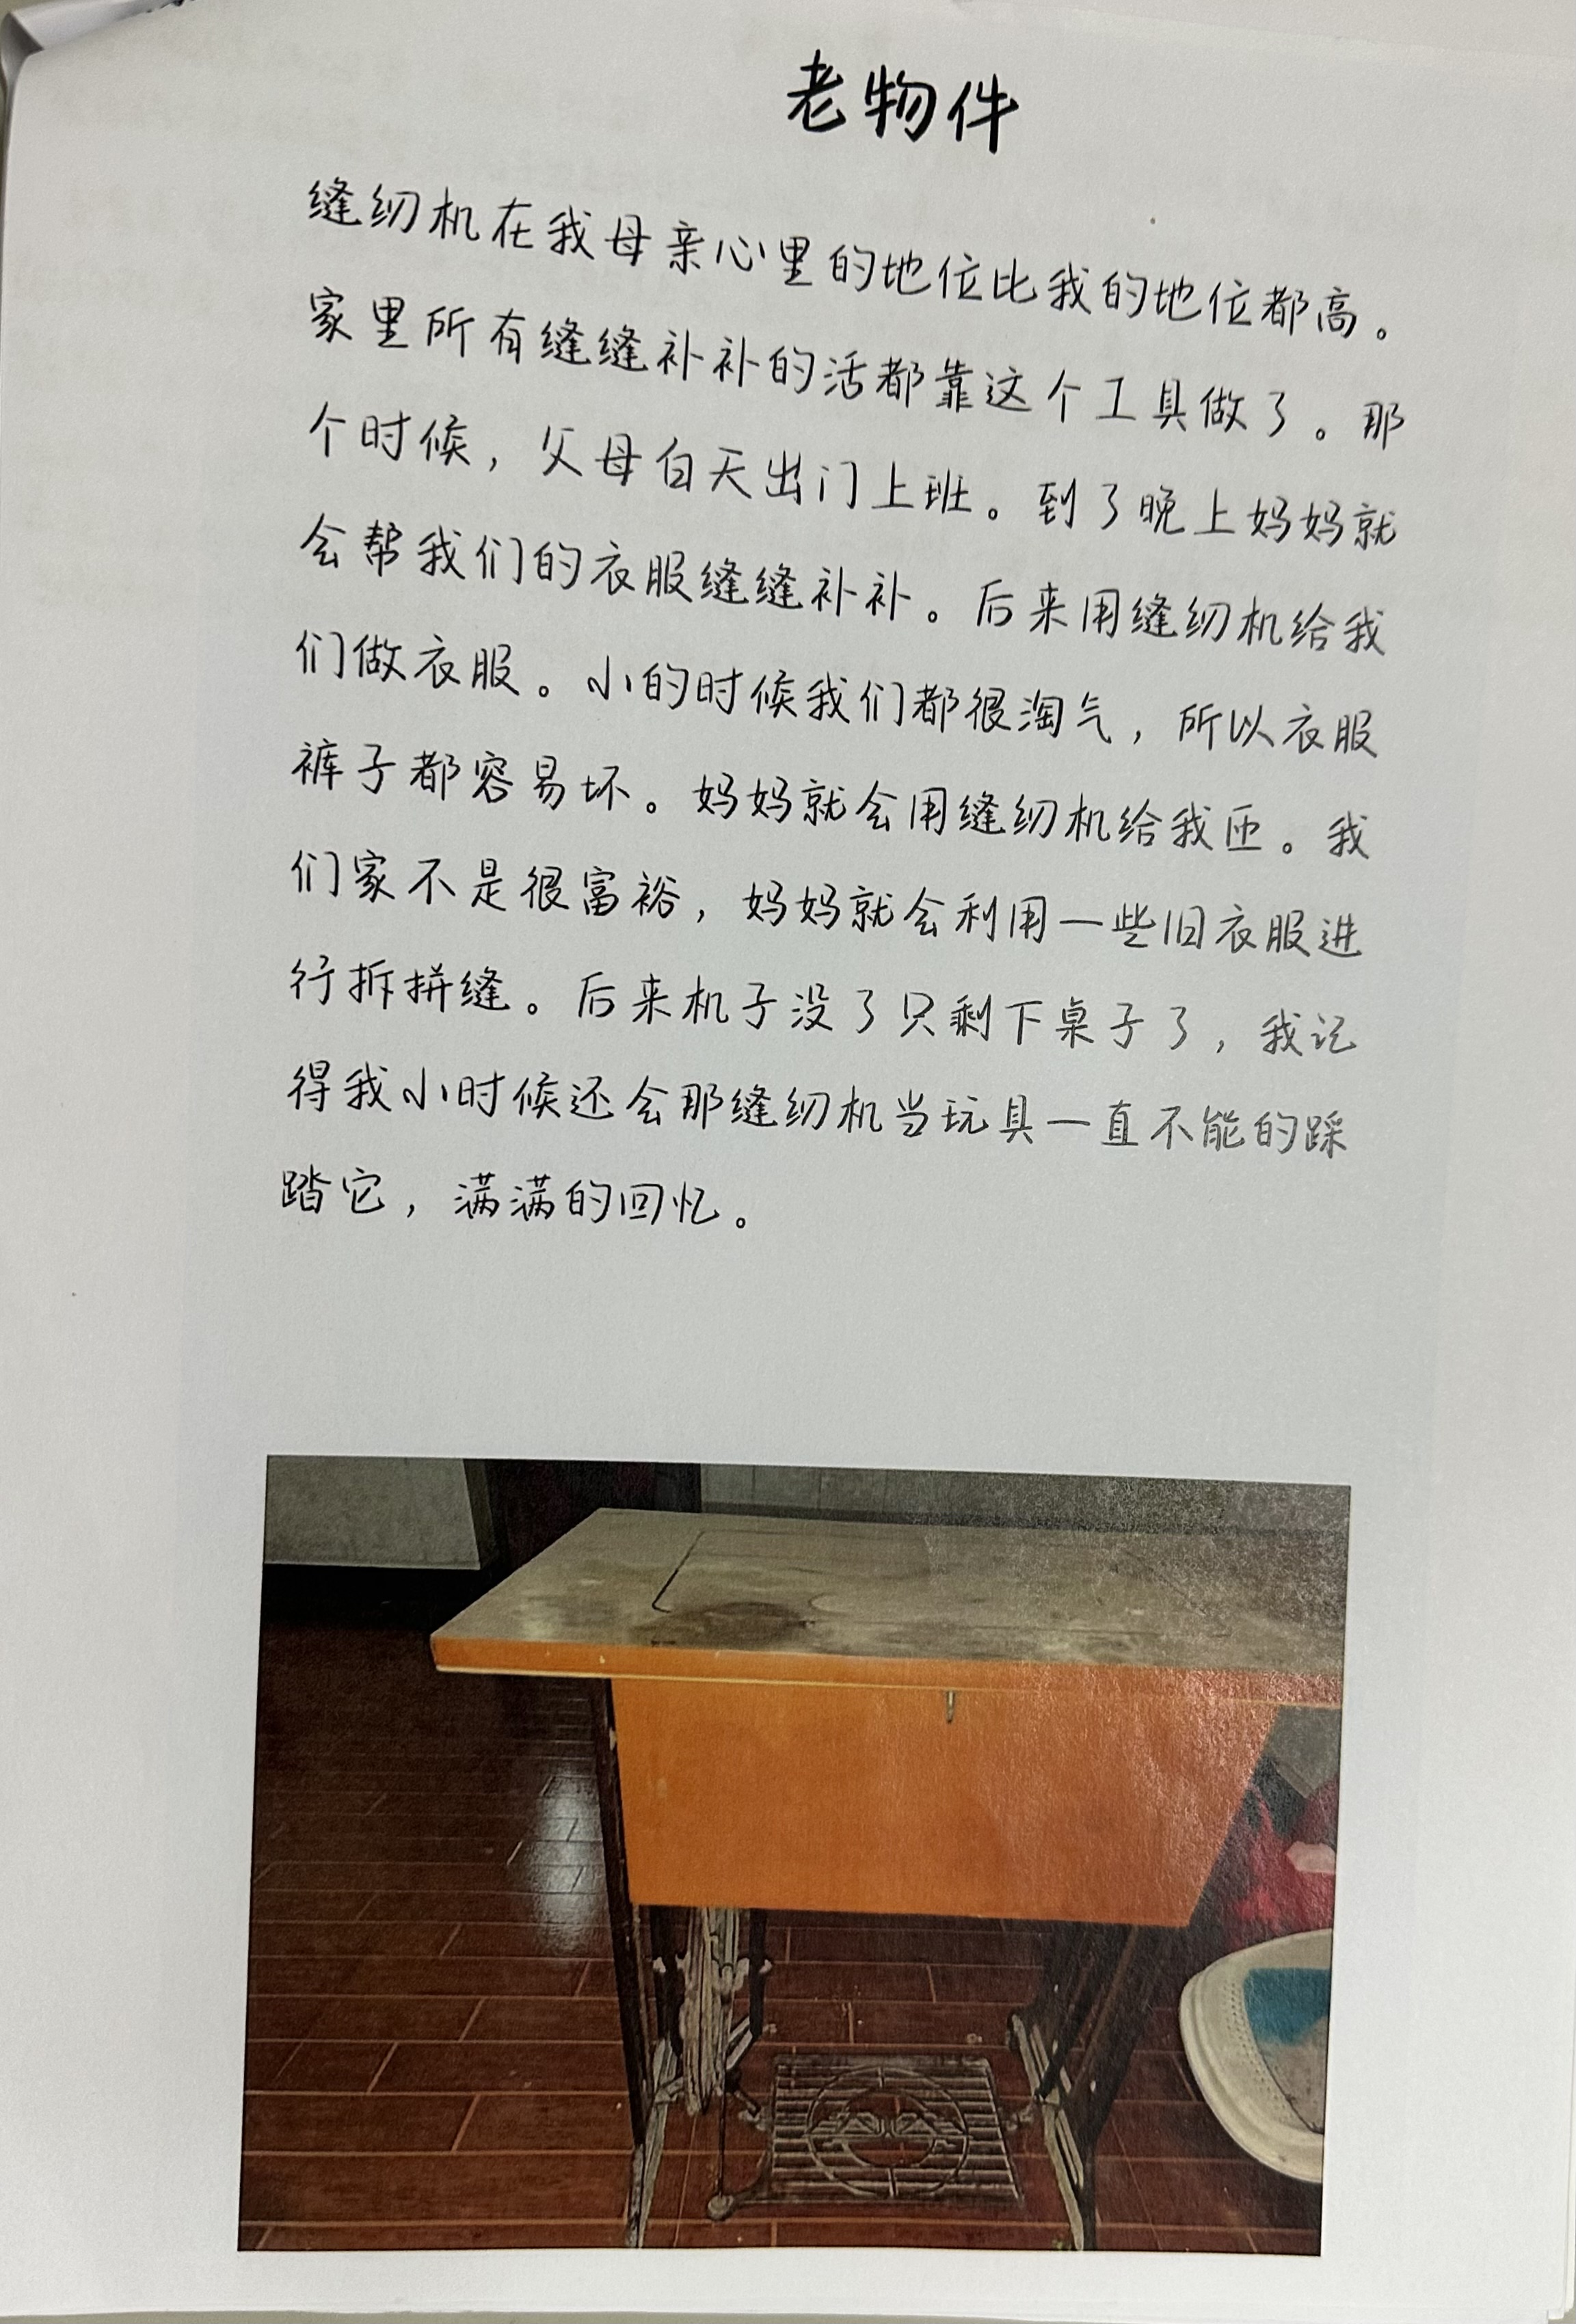 老物件
缝纫机在我母亲心里的地位比我的地位都高。
家里所有缝缝补补的活都靠这个工具做了。那
个时候，父母白天出门上班。到了晚上妈妈就
会帮我们的衣服缝缝补补。后来用缝纫机给我
们做衣服。小的时候我们都很淘气，所以衣服
裤子都容易坏。妈妈就会用缝纫机给我匝。我
们家不是很富裕，妈妈就会利用一些旧衣服进
行拆拼缝。后来机子没了只剩下桌子了，我记
得我小时候还会那缝纫机当玩具一直不能的踩
踏它，满满的回忆。